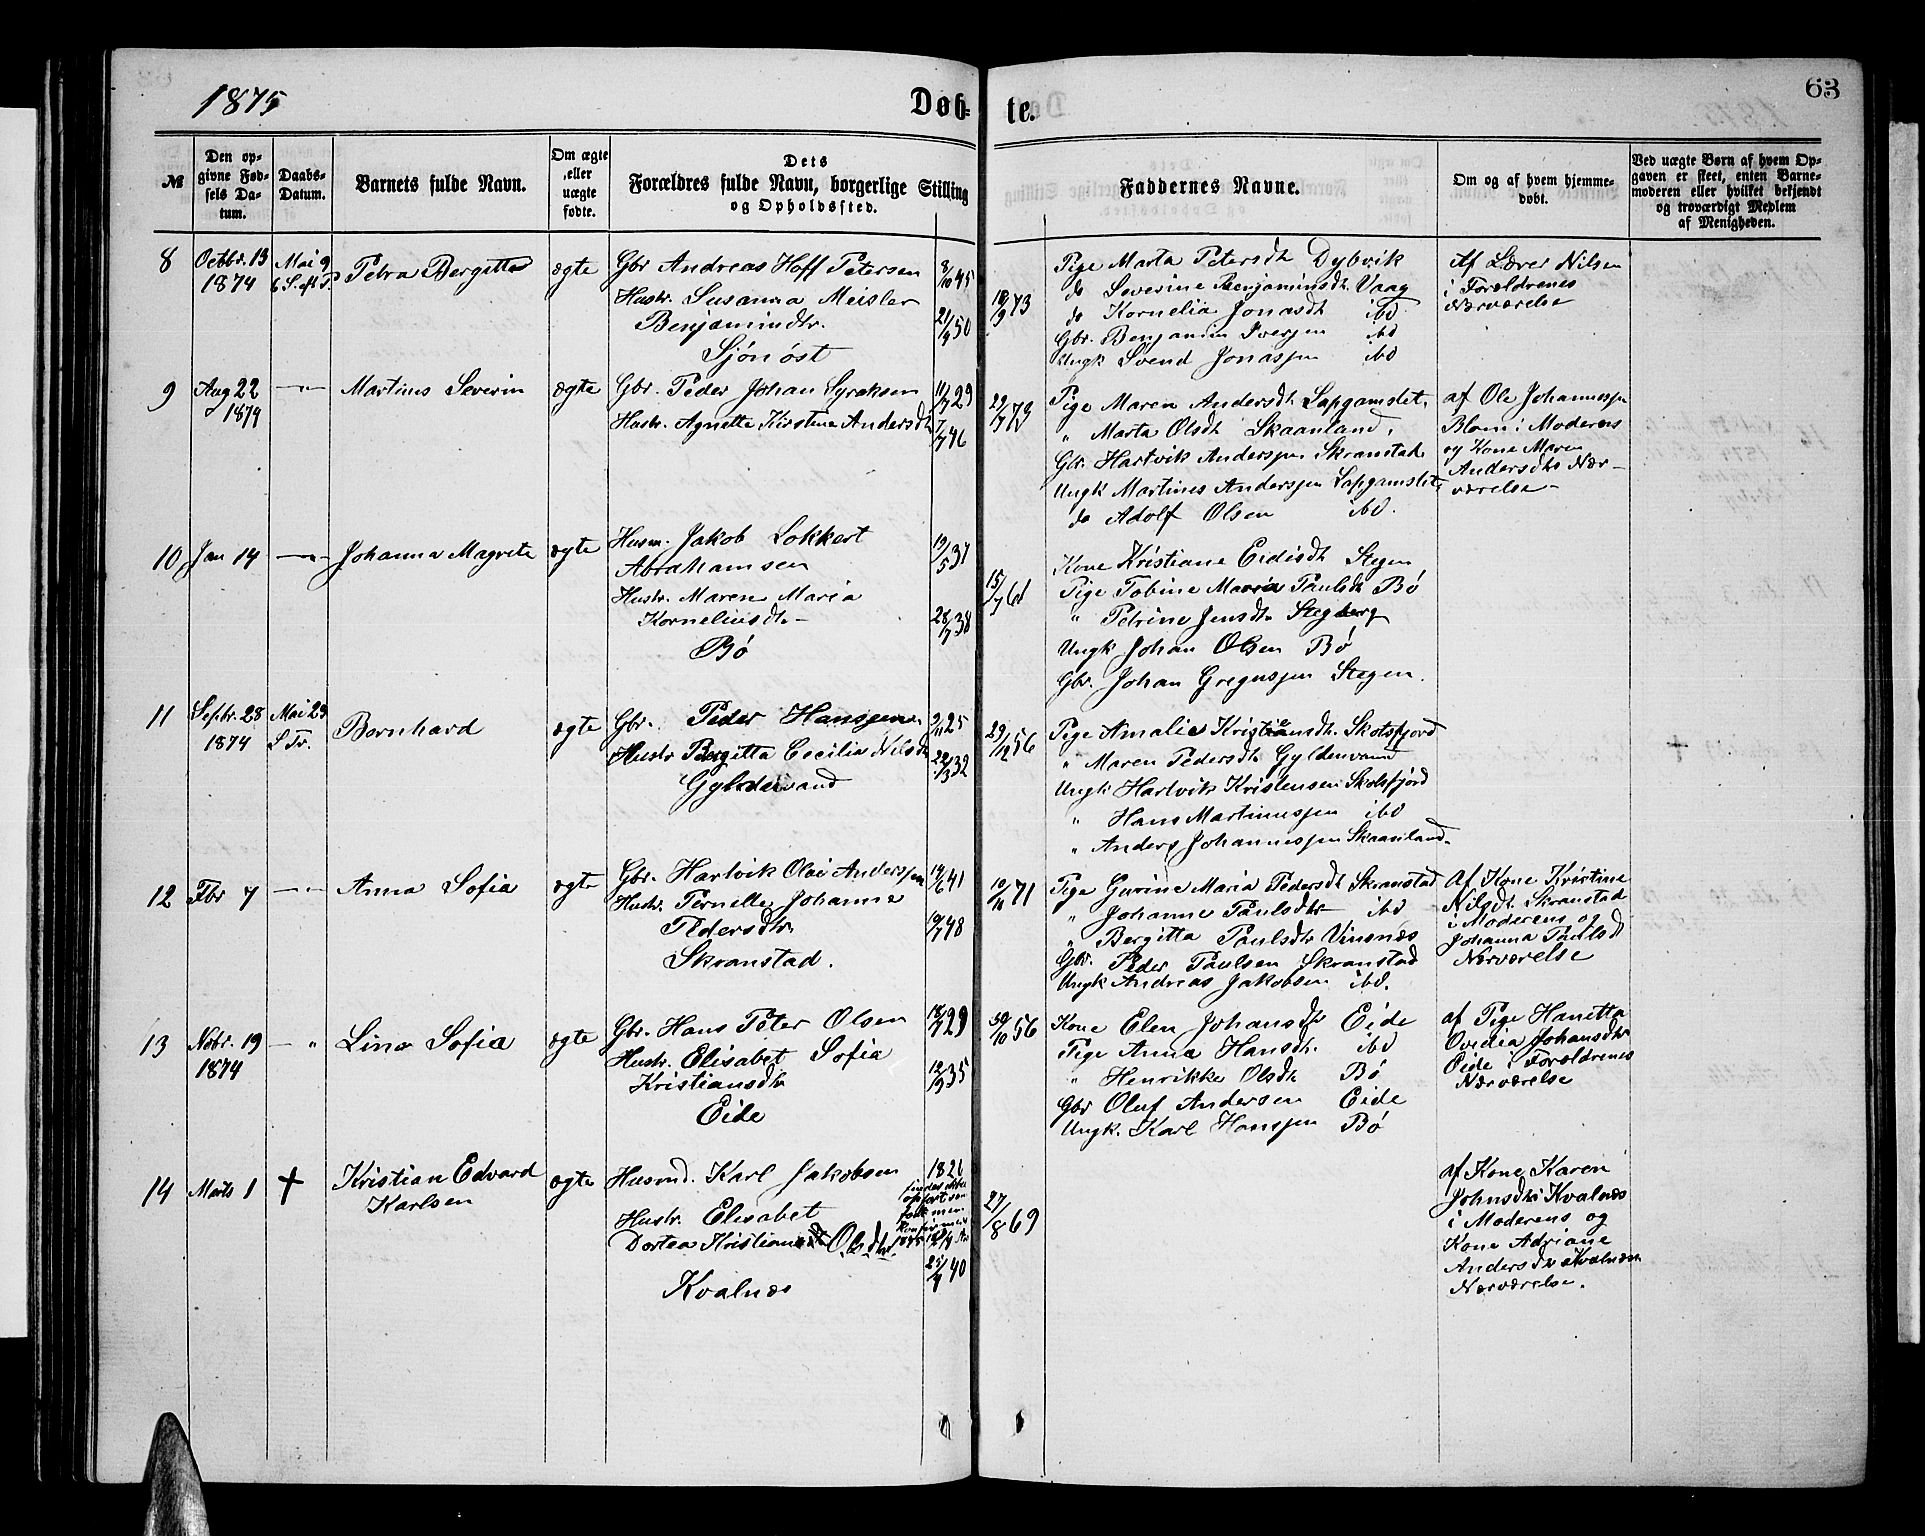 1875
Døb-
te.
63
№
Den op-
givne Fød-
sels Da-
tum.
Daabs-
Datum.
Barnets fulde Navn.
Om ægte
eller
uægte
fødte.
Dets
Forældres fulde Navn, borgerlige Stilling
og Opholdssted.
Faddernes Navne.
Om og af hvem hjemme-
døbt.
Ved uægte Børn af hvem Op-
gaven er skeet, enten Barne-
moderen eller hvilket bekjendt
og troværdigt Medlem
af Menigheden.
8
Octbr. 13
1874
Mai 9
6 S. eft P.
Petra Bergitte
ægte
Gbr Andreas Hoff Petersen
Hustr. Susanna Meisler
Benjamindtr.
Sjönöst
8/10 45
21/9 50
18/9 73
Pige Marta Petersdt Dybvik
do Severine Benjaminsdt. Vaag
do Kornelia Jonasdt ibd
Gbr. Benjamin Iversen ibd
Ungk Svend Jonassen ibd
Af Lærer Nilsen
i Forældrenes
Nærværelse
9
Aug 22
1874
Martinus Severin
ægte
Gbr. Peder Johan Syraksen
Hustr. Agnette Kirstine Andersdt
11/7 29
7/7 46
29/7 73
Pige Maren Andersdt Lapgamslet.
" Marta Olsdt Skaanland.
Gbr. Hartvik Anderssen Skranstad
Ungk Martines Anderssen Lapgamslet
do Adolf Olsen ibd.
af Ole Johannessen
Blom i Moderens
og Kone Maren
Andersdtrs Nær-
værelse-
10
Jan 14
Johanna Magrete
ægte
Husm. Jakob Lokkert
Abrahamsen
Hustr. Maren Maria
Korneliusdt-
Bø
19/5 37
28/7 38
15/7 61
Kone Kristiane Eidisdt Stegen
Pige Tobine Maria Paulsdt Bø
" Petrine Jensdt. Stegberg
Ungk Johan Olsen Bø
Gbr. Johan Gregussen Stegen.
11
Septr. 28
1874
Mai 23
S Tr.
Bernhard
ægte
Gbr. Peder Hanssen
Hustr Bergitta Cecilia Nilsdt
Gyldenvand
9/11 25
22/3 32
29/12 56
Pige Amalie Kristiansdt. Skotsfjord
" Maren Pedersdt Gyldenvand
Ungk Hartvik Kristensen Skotsfjord
" Hans Martinussen ibd
" Anders Johannessen Skaanland.
12
Fbr 7
Anna Sofia
ægte
Gbr. Hartvik Olai Anderssen
Hustr. Pernelle Johanne
Pedersdtr.
Skranstad.
14/6 41
9/7 48
10/10 71
Pige Gurine Maria Pedersdt Skranstad
" Johanne Paulsdtr ibd
" Bergitta Paulsdtr Vinsnæs
Gbr. Peder Paulsen Skranstad
Ungk Andreas Jakobsen ibd.
Af Kone Kristine
Nilsdt. Skranstad
i Moderens og
Johanna Paulsd
Nærværelse
13
Nobr. 19
1874
Lina Sofia
ægte
Gbr. Hans Peter Olsen
Hustr. Elisabet Sofia
Kristiansdtr
Eide
18/7 29
12/9 35
30/10 56
Kone Elen Johansdt Eide
Pige Anna Hansdt. ibd
" Henrikke Olsdt Bø
Gbr Oluf Andersen Eide
Ungk. Karl Hanssen Bø
af Pige Hanetta
Ovidia Johansdtr
Eide i Forældrenes
Nærværelse
14
Marts 1
✝
Kristian Edvard
Karlsen
ægte
Husmd. Karl Jakobsen
Hustr. Elisabet
Dortea Olsdtr.
Kvalnæs
findes ikke
25/4 40
27/8 69
af Kone Karen
Johnsdtr Kvalnæs
i Moderens og
Kone Adriane
Andersdtr Kvalnæs
Nærværelse.